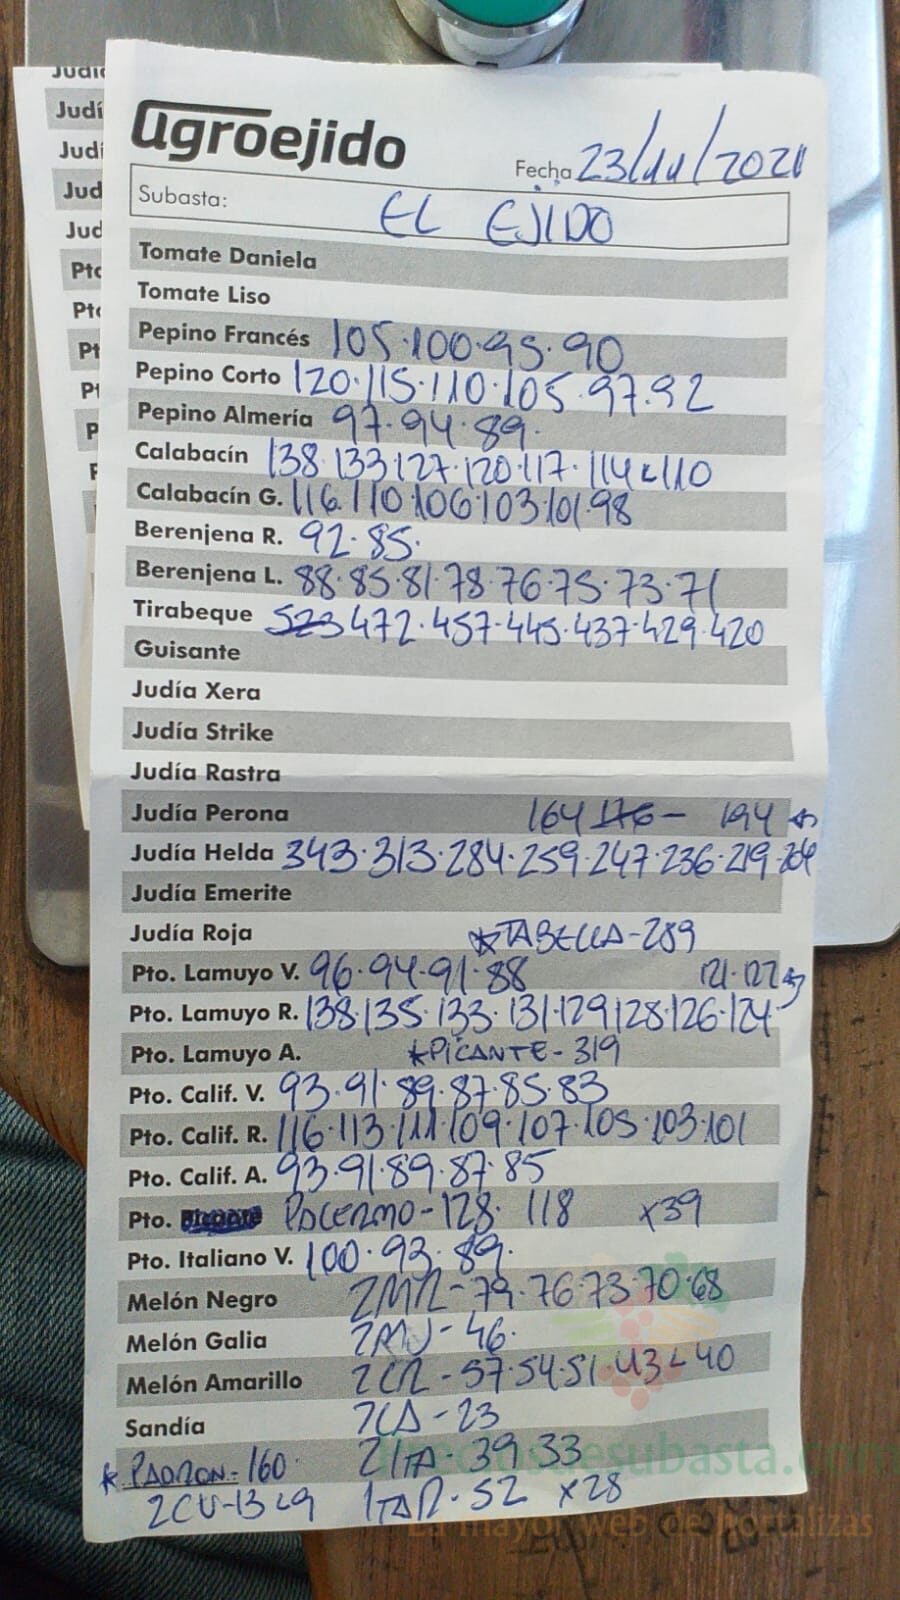 agroejido
Fecha 23/11/2021
Subasta: EL EJIDO
Tomate Daniela
Tomate Liso
Pepino Francés 105·100·95·90
Pepino Corto 120·115·110·105·97·92
Pepino Almería 97·94·89·
Calabacín 138·133·127·120·117·114<110
Calabacín G. 116·110·106·103·101·98
Berenjena R. 92·85·
Berenjena L. 88·85·81·78·76·75·73·71
Tirabeque 523 472·457·445·437·429·420
Guisante
Judía Xera
Judía Strike
Judía Rastra
Judía Perona 164 176- 194
Judía Helda 343·313·284·259·247·236·219·204
Judía Emerite
Judía Roja *TABELLA-289
Pto. Lamuyo V. 96·94·91·88 121·122
Pto. Lamuyo R. 138·135·133·131·129·128·126·124
Pto. Lamuyo A. *PICANTE-319
Pto. Calif. V. 93·91·89·87·85·83
Pto. Calif. R. 116·113·111·109·107·105·103·101
Pto. Calif. A. 93·91·89·87·85
Pto. Picante PALERMO-128· 118 x39
Pto. Italiano V. 100·93·89·
Melón Negro 2MR-79·76·73·70·68
Melón Galia 2MV-46·
Melón Amarillo 2CR-57·54·51·43<40
Sandía 2CA-23
*PADRON-160· 2ITA·39·33
2CV-13<9 1TAR·52 x28
preciosdesubasta.com
La mayor web de hortalizas
Judí
Judí
Jud
Jud
Pto
Pt
Pt
P